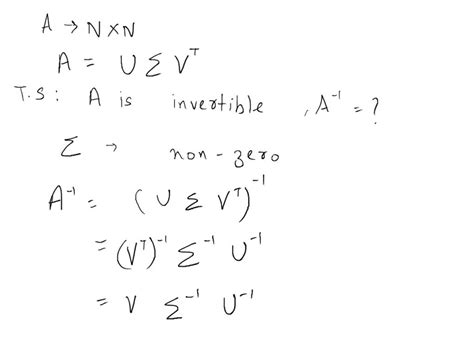 A → N×N
A = U Σ Vᵀ
T.S : A is invertible , A⁻¹ = ?
Σ → non-zero
A⁻¹ = (U Σ Vᵀ)⁻¹
= (Vᵀ)⁻¹ Σ⁻¹ U⁻¹
= V Σ⁻¹ U⁻¹